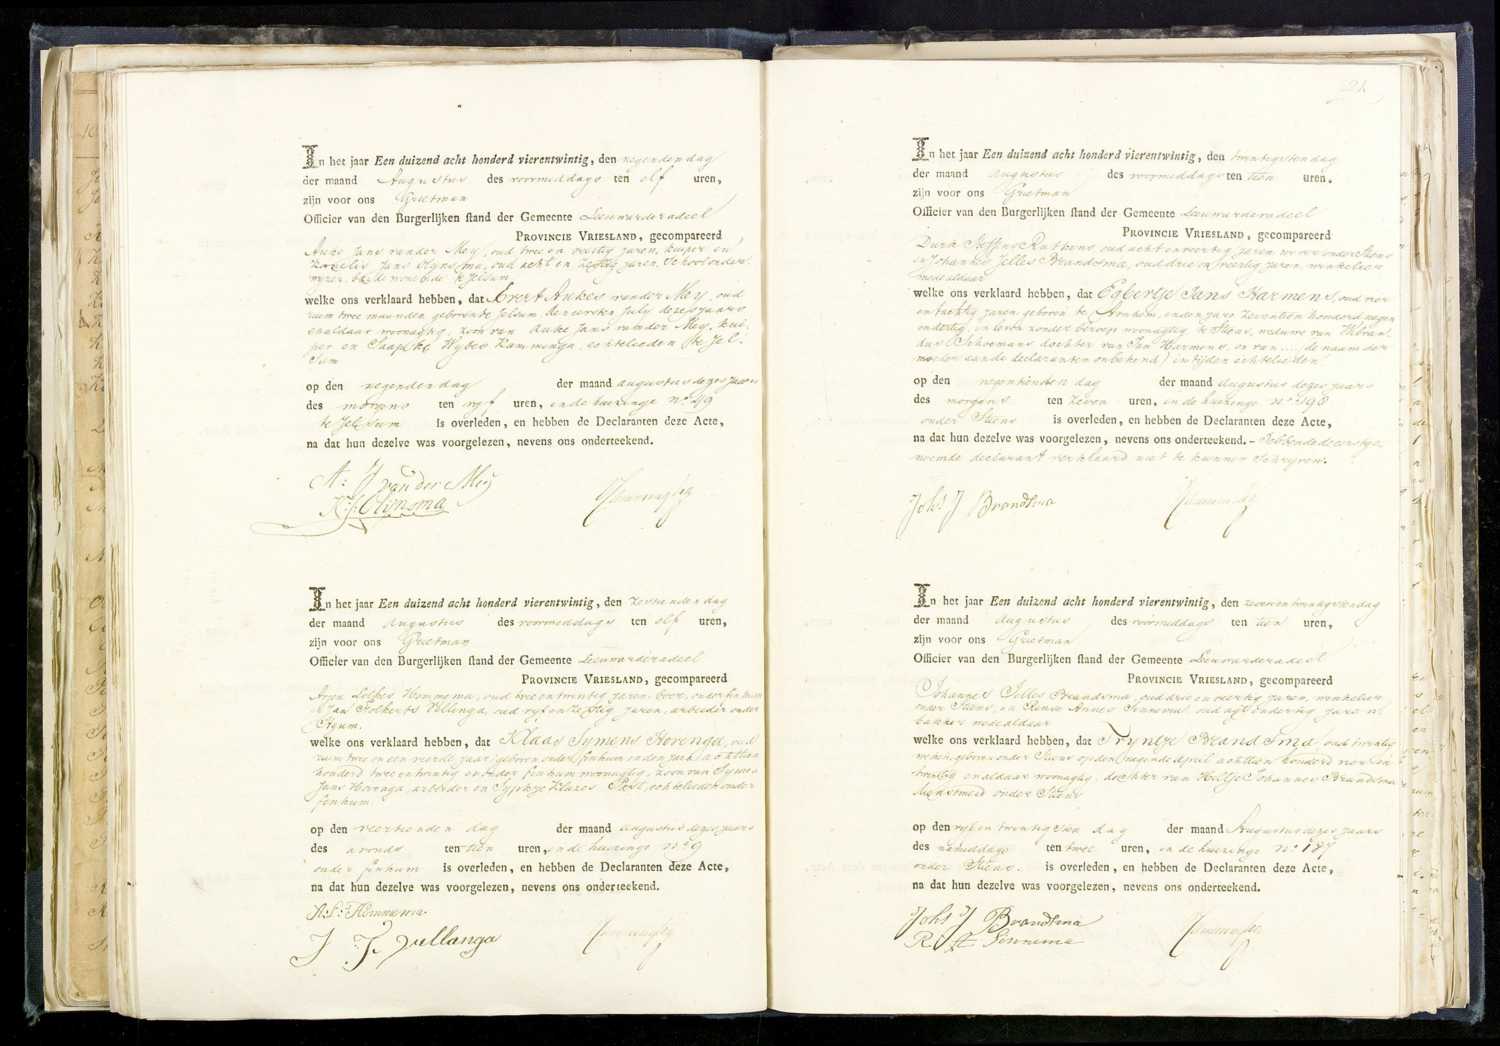 In het jaar Een duizend acht honderd vierentwintig, den negenden dag
der maand Augustus des voormiddags ten elf uren,
zijn voor ons Grietman
Officier van den Burgerlijken stand der Gemeente Leeuwarderadeel
PROVINCIE VRIESLAND, gecompareerd
Auke Jans van der Mey, oud twee en veertig jaren, kuiper en
Jans Olynsma, oud acht en zestig jaren, Schoolonder
wyzer, beide woonende te Jelsum
welke ons verklaard hebben, dat Evert Aukes van der Mey, oud
ruim twee maanden geboren te Jelsum den eersten July dezes jaars
en aldaar woonagtig, zoon van Auke Jans van der Mey, kui-
per en Saapke Wybes Kammenga, echtelieden te Jel-
sum
op den negenden dag der maand augustus dezes jaars
des morgens ten vyf uren, in de huizinge no. 49
te Jelsum is overleden, en hebben de Declaranten deze Acte,
na dat hun dezelve was voorgelezen, nevens ons onderteekend.
A: J van der Meij
K. J. Olijnsma
In het jaar Een duizend acht honderd vierentwintig, den zestienden dag
der maand Augustus des voormiddags ten elf uren,
zijn voor ons Grietman
Officier van den Burgerlijken stand der Gemeente Leeuwarderadeel
PROVINCIE VRIESLAND, gecompareerd
Hommema, oud twee en twintig jaren, boer, onder finkum
Jan Folkerts Vellenga, oud vyf en zestig jaren, arbeider onder
welke ons verklaard hebben, dat Klaas Symens Horenga, oud
ruim twee en een vierde jaar, geboren onder finkum in den jare achttien
honderd twee en twintig en onder finkum woonagtig, zoon van Symen
Jans Horenga, arbeider en Sypkje Klazes Post, echtelieden onder
finkum.
op den veertienden dag der maand augustus dezes jaars
des avonds ten tien uren, in de huizinge no. 9
onder finkum is overleden, en hebben de Declaranten deze Acte,
na dat hun dezelve was voorgelezen, nevens ons onderteekend.
Hommema
J. F. Vullanga
In het jaar Een duizend acht honderd vierentwintig, den twintigsten dag
der maand augustus des voormiddags ten tien uren,
zijn voor ons Grietman
Officier van den Burgerlijken stand der Gemeente Leeuwarderadeel
PROVINCIE VRIESLAND, gecompareerd
Durk Ruthens, oud acht en veertig jaren, boer onder Stiens
en Johannes Jelles Brandsma, oud drie en veertig jaren, winkelier
mede aldaar
welke ons verklaard hebben, dat Egbertje Jans Harmens, oud vier
en tachtig jaren, geboren te Arnhem, in den jare zeventien honderd negen
en dertig, en laatst zonder beroep woonagtig te Stiens, weduwe van Wibran
dus Schoemans dochter van Jan Harmens, en van .... (de naam der
moeder aan de declaranten onbekend) in tijden echtelieden
op den negentienden dag der maand augustus dezes jaars
des morgens ten zeven uren, in de huizinge no. 198
onder Stiens is overleden, en hebben de Declaranten deze Acte,
na dat hun dezelve was voorgelezen, nevens ons onderteekend. - hebbende de eerstge-
noemde declarant verklaard niet te kunnen schryven.
Johs J Brandsma
In het jaar Een duizend acht honderd vierentwintig, den zeven en twintigsten dag
der maand augustus des voormiddags ten tien uren,
zijn voor ons Grietman
Officier van den Burgerlijken stand der Gemeente Leeuwarderadeel
PROVINCIE VRIESLAND, gecompareerd
Johannes Jelles Brandsma, oud drie en veertig jaren, winkelier
onder Stiens, en Rinse Annes Sinnema oud agt en dertig jaren
bakker mede aldaar
welke ons verklaard hebben, dat Tryntje Brandsma, oud twintig
weken, geboren onder Stiens op den negende april achttien honderd vier en
twintig en aldaar woonagtig, dochter van Hiltje Johannes Brandsma
dienstmeid onder Stiens
op den vyf en twintigsten dag der maand Augustus dezes jaars
des namiddags ten twee uren, in de huizinge no. 187
onder Stiens. is overleden, en hebben de Declaranten deze Acte,
na dat hun dezelve was voorgelezen, nevens ons onderteekend.
Johs J Brandsma
R A Sinnema